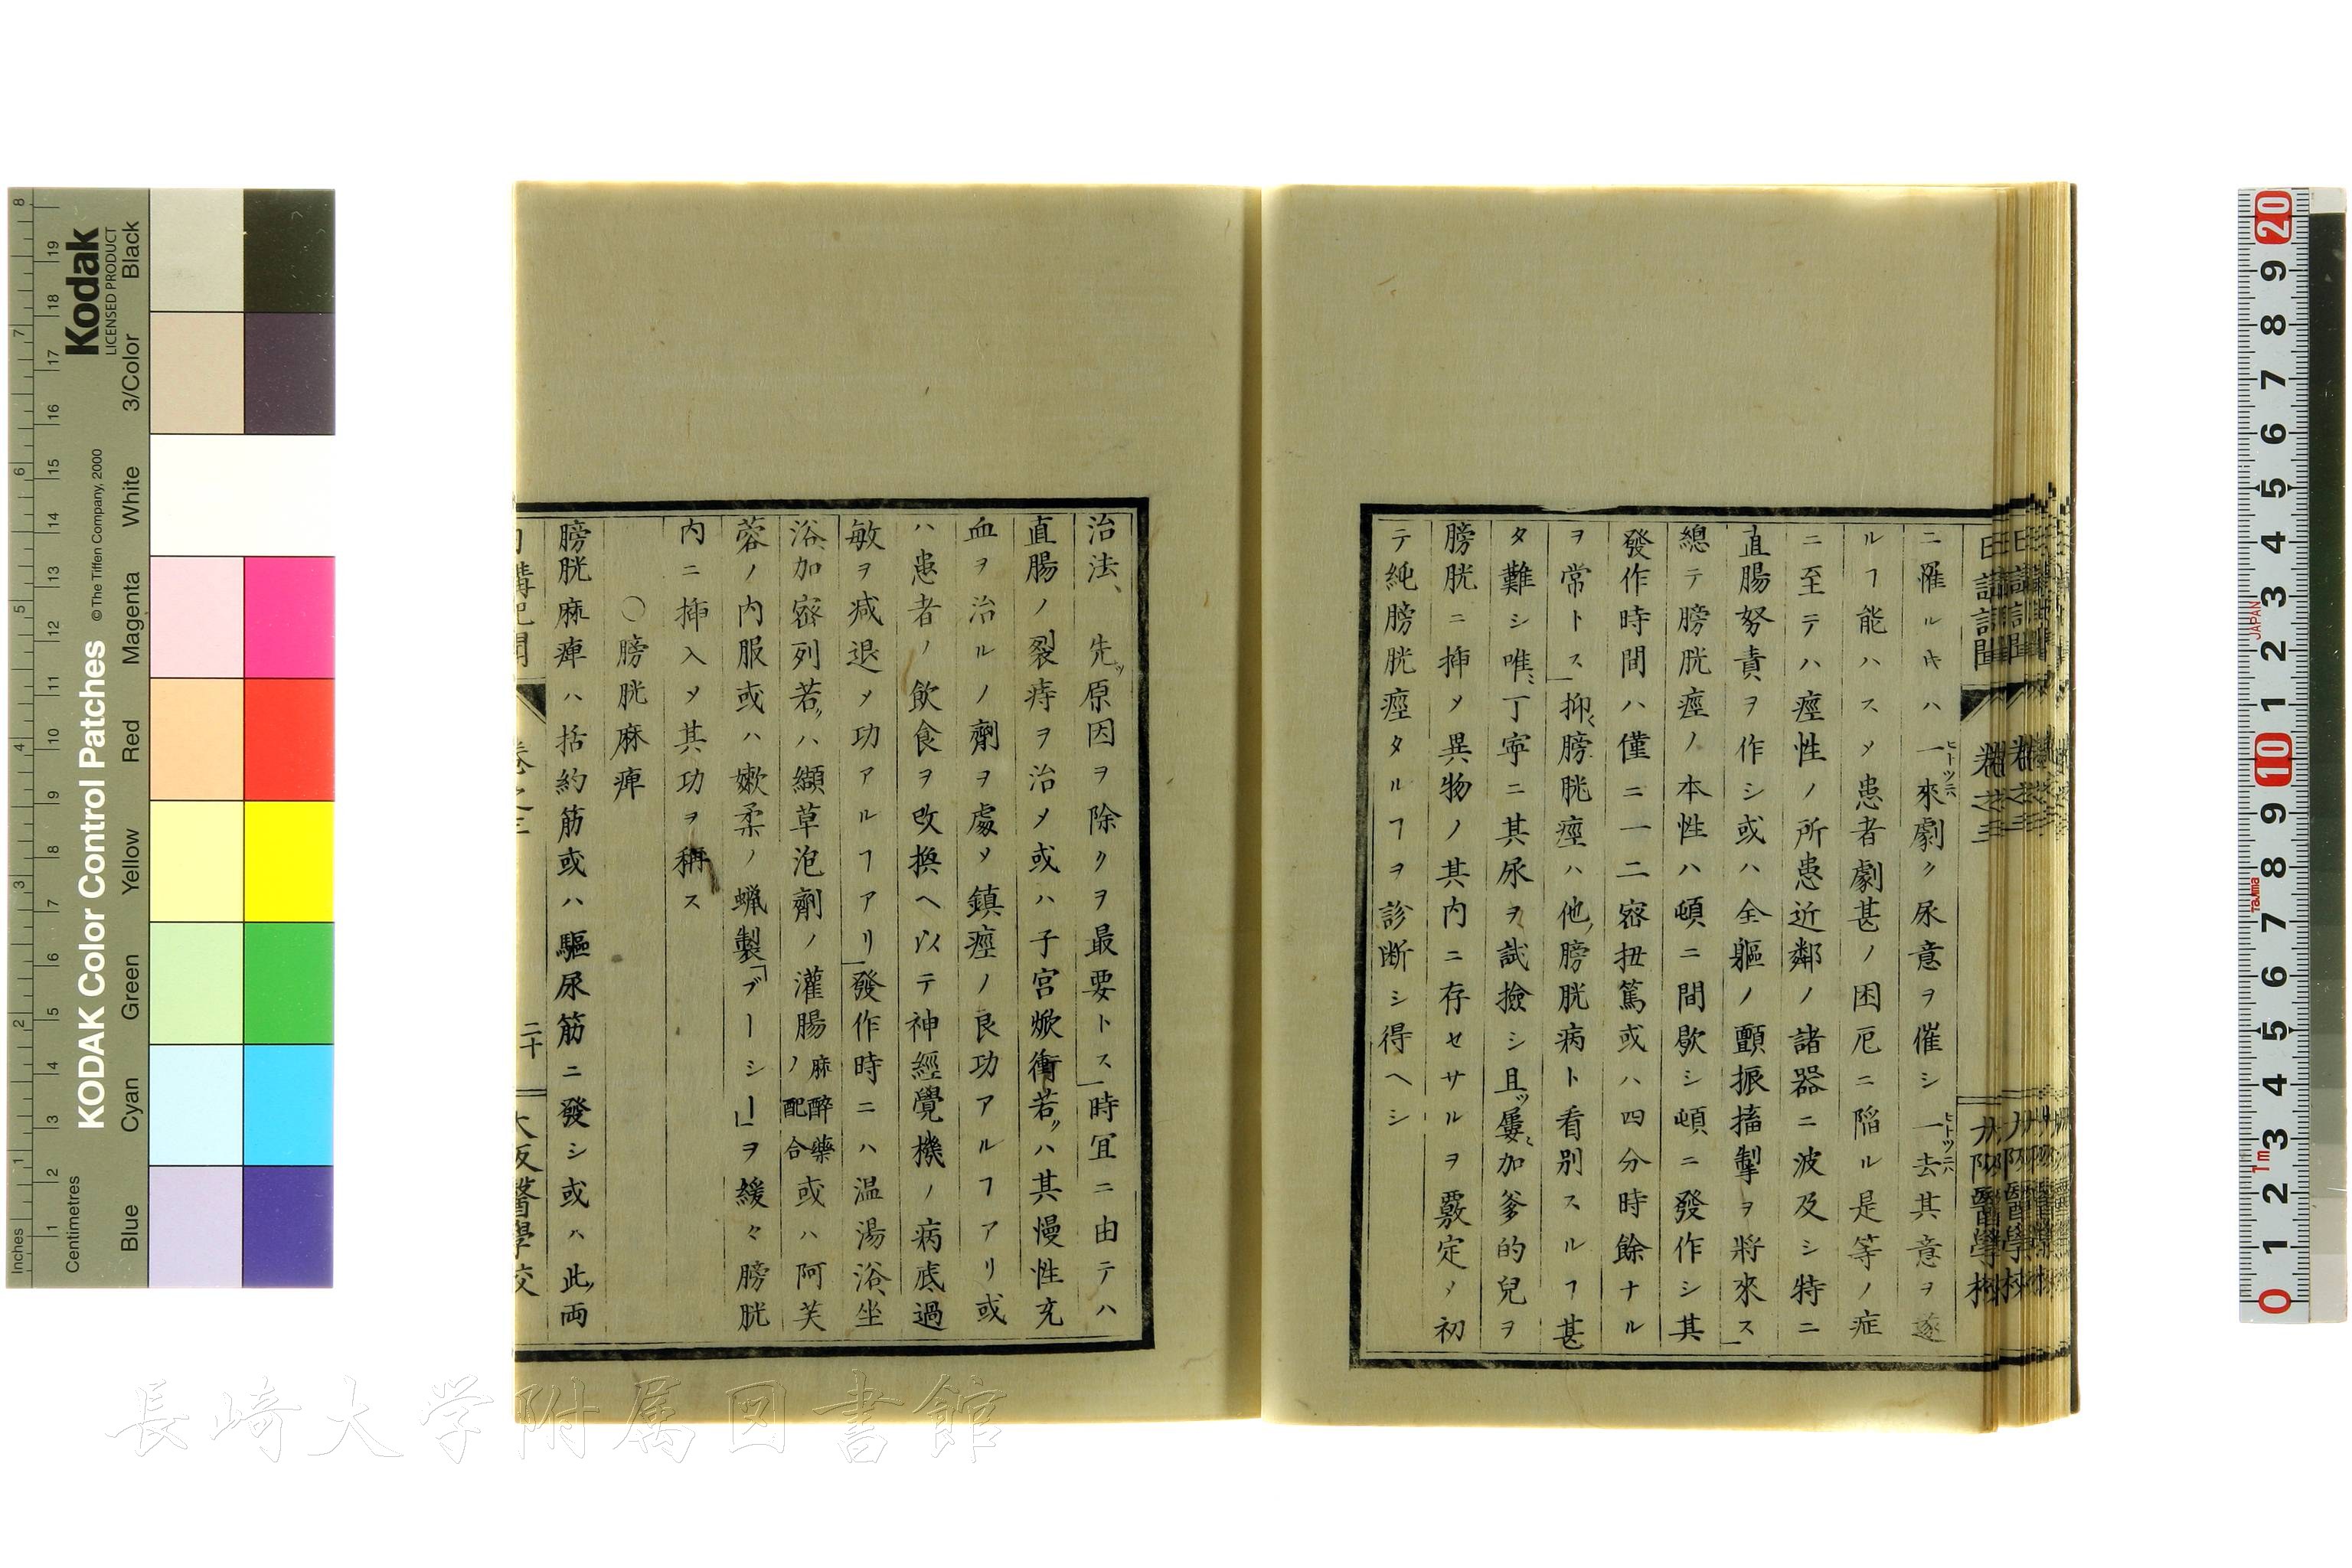 ニ罹ル𪜈ハ一來劇ク尿意ヲ催シ一去其意ヲ遂
ルヿ能ハスメ患者劇甚ノ困厄ニ陥ル是等ノ症
ニ至テハ痙性ノ所患近鄰ノ諸器ニ波及シ特ニ
直腸努責ヲ作シ或ハ全軀ノ顫振搐掣ヲ將來ス」
總テ膀胱痙ノ本性ハ頓ニ間歇シ頓ニ發作シ其
發作時間ハ僅ニ一二密扭篤或ハ四分時餘ナル
ヲ常トス」抑膀胱痙ハ他ノ膀胱病ト看別スルヿ甚
タ難シ唯丁寧ニ其尿ヲ試撿シ且ツ屢加爹的兒ヲ
膀胱ニ揷メ異物ノ其内ニ存セサルヲ覈定メ初
テ純膀胱痙タルヿヲ診断シ得ヘシ
治法、先ツ原因ヲ除クヲ最要トス」時宜ニ由テハ
直腸ノ裂痔ヲ治メ或ハ子宮焮衝若クハ其慢性充
血ヲ治ルノ劑ヲ處メ鎮痙ノ良功アルヿアリ或
ハ患者ノ飲食ヲ改換ヘ以テ神經覺機ノ病底過
敏ヲ减退メ功アルヿアリ」發作時ニハ温湯浴、坐
浴、加密列若クハ纈草泡劑ノ灌腸麻醉藥ノ配合或ハ阿芙
蓉ノ内服或ハ嫩柔ノ蝋製「ブーシー」ヲ緩々膀胱
内ニ揷入メ其功ヲ稱ス
〇膀胱麻痺
膀胱麻痺ハ括約筋或ハ驅尿筋ニ發シ或ハ此両
二十
大阪醫學校
Kodak
LICENSED PRODUCT
KODAK Color Control Patches
© The Tiffen Company, 2000
Inches
Centimetres
Blue
Cyan
Green
Yellow
Red
Magenta
White
3/Color
Black
JAPAN
Tajima
1m
長崎大学附属図書館